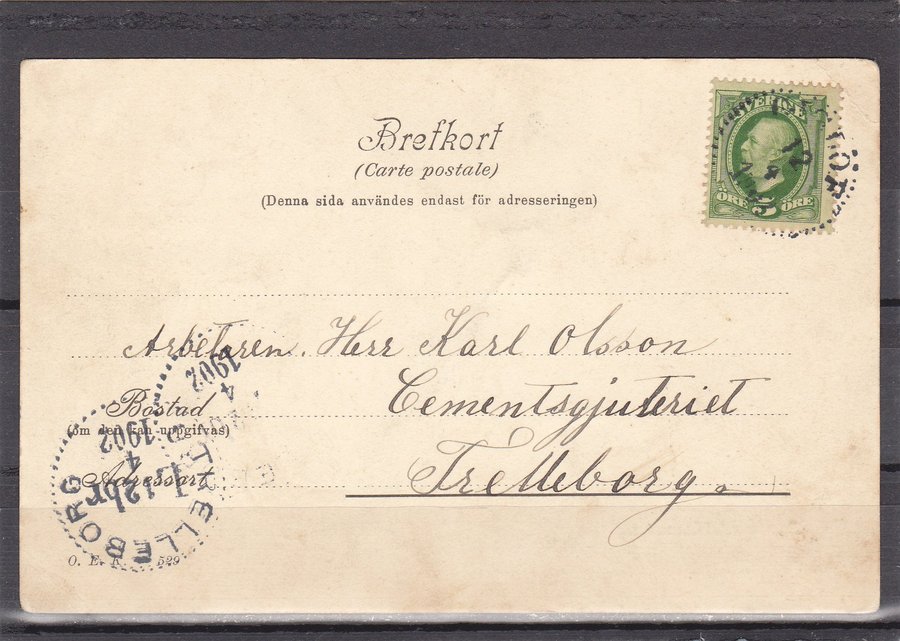 Brefkort
(Carte postale)
(Denna sida användes endast för adresseringen)
SVERIGE
ÖRE 5 ÖRE
12
4
Arbetaren. Herr Karl Olsson
Bostad
(om den kan uppgifvas)
Cementsgjuteriet
Adressort
Trelleborg.
1902
4
TRELLEBORG
1902
4
12
O. E. K. 529